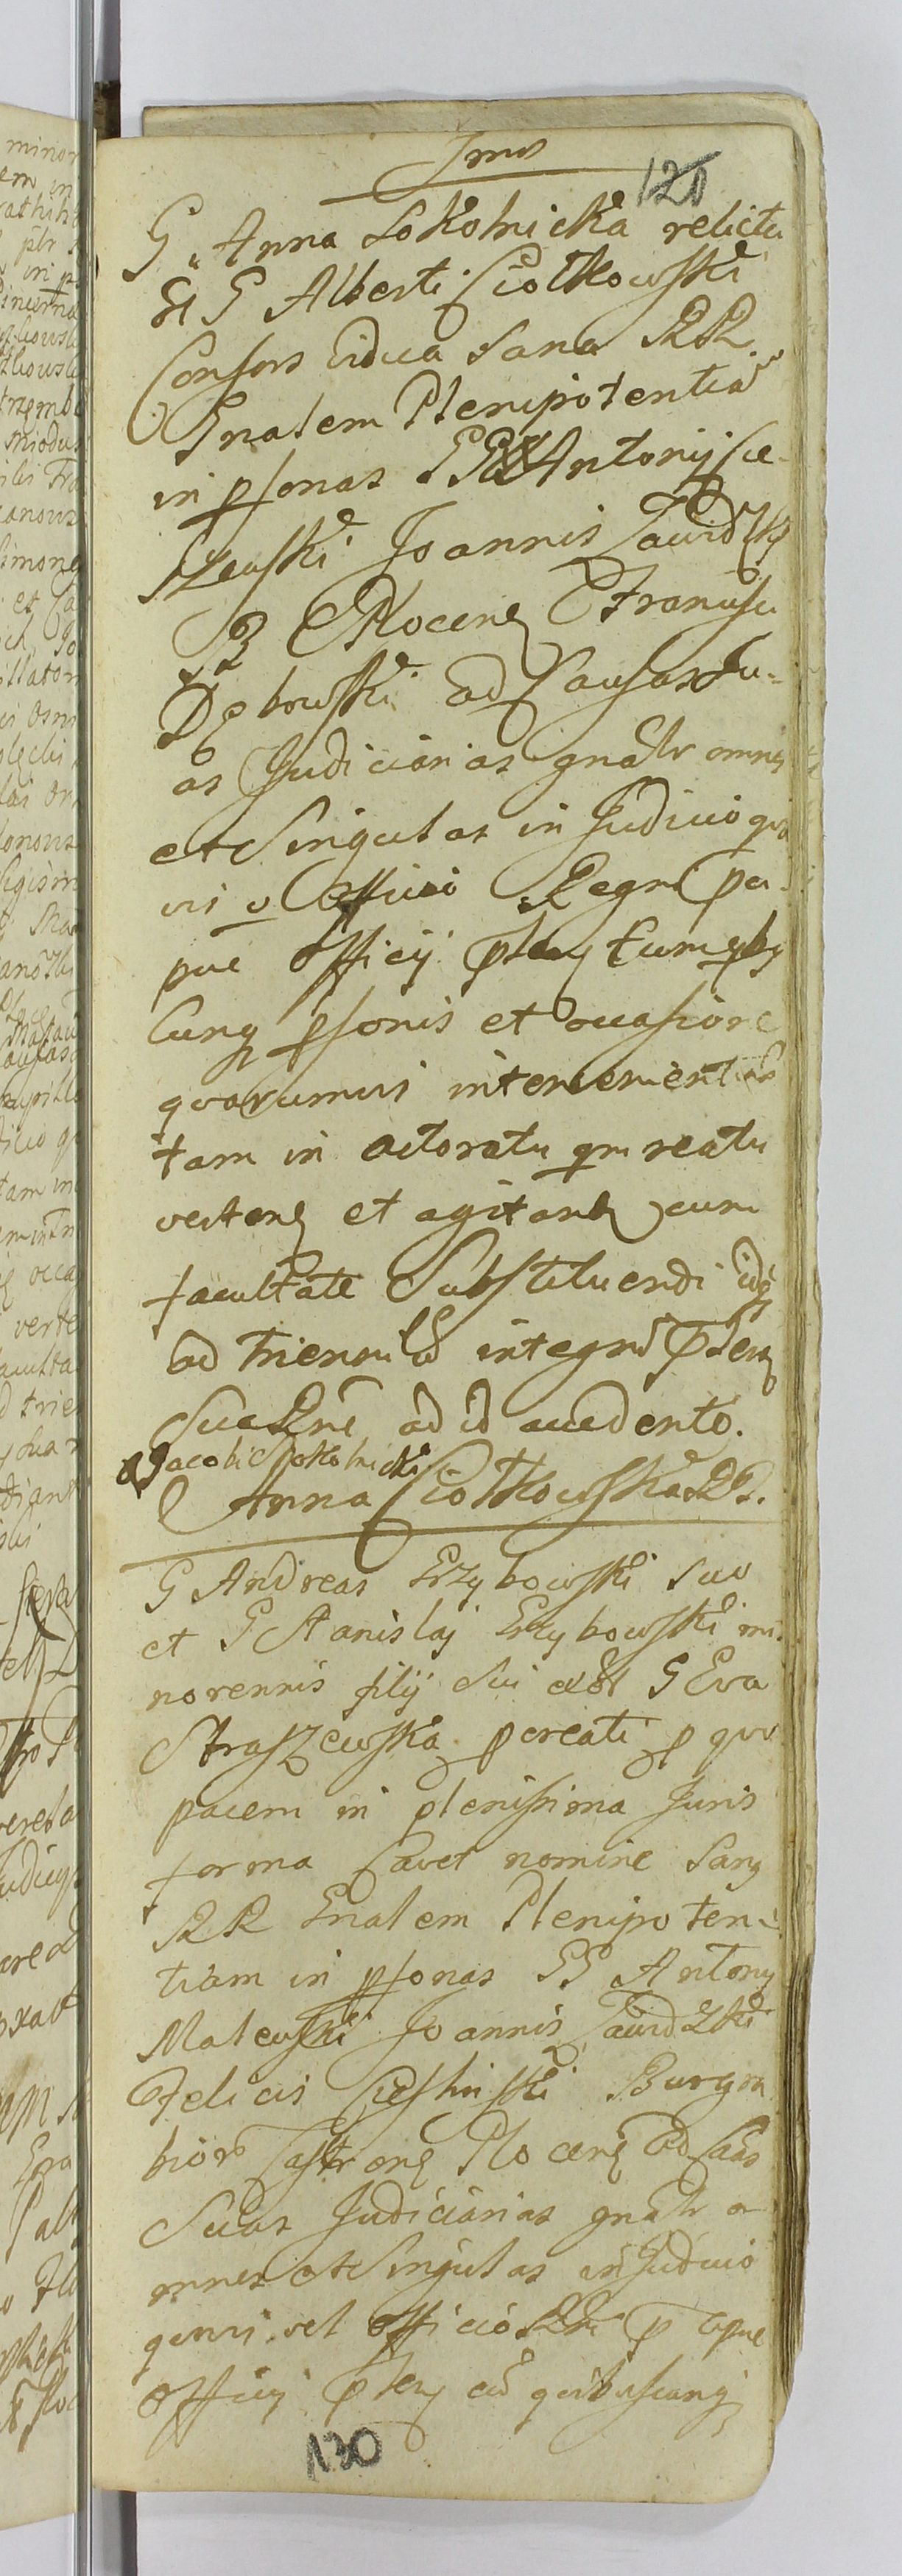 Imus
120
G Anna Sokolnicka relicta
Et G Alberti Ciołkowski
Consors vidua sana RR
Gnalem Plenipotentiā
in psonas GG Antonij Cie-
szewski Joannis Zawidzki
B Plocen Francisci
Dębowski ad Causas Su-
as Judiciarias gnałr omnes
et Singulas in Judicio quo
vis v Officio Regni per
pue Officij pten cum quibus
cunq psonis et occasione
quarumvis intervenientes
tam in actoratu qm reatu
verten et agitan cum
facultate Substituendi idq
ad trienniū integrū pten
Suae Rne ad id accedente.
Jacobi Sokolnicki
Anna Ciołkowska RR.
G Andreas Grzybowski suo
et G Stanislaj Grzybowski mi-
norennis filij Sui ex G Eva
Straszewska pcreati p quo
pacem in plenissima Juris
forma Cavet nomine Sany
RR Gnalem Plenipoten-
tiam in psonas GG Antony
Malewski Joannis Zawidzki
Felicis Cieslinski Burgra
bior Castren Plocen ad Caās
Suas Judiciarias gnałr o-
mnes et Singulas in Judicio
quovi vel Officio Rni p
Officij pten cū quibuscunq
130